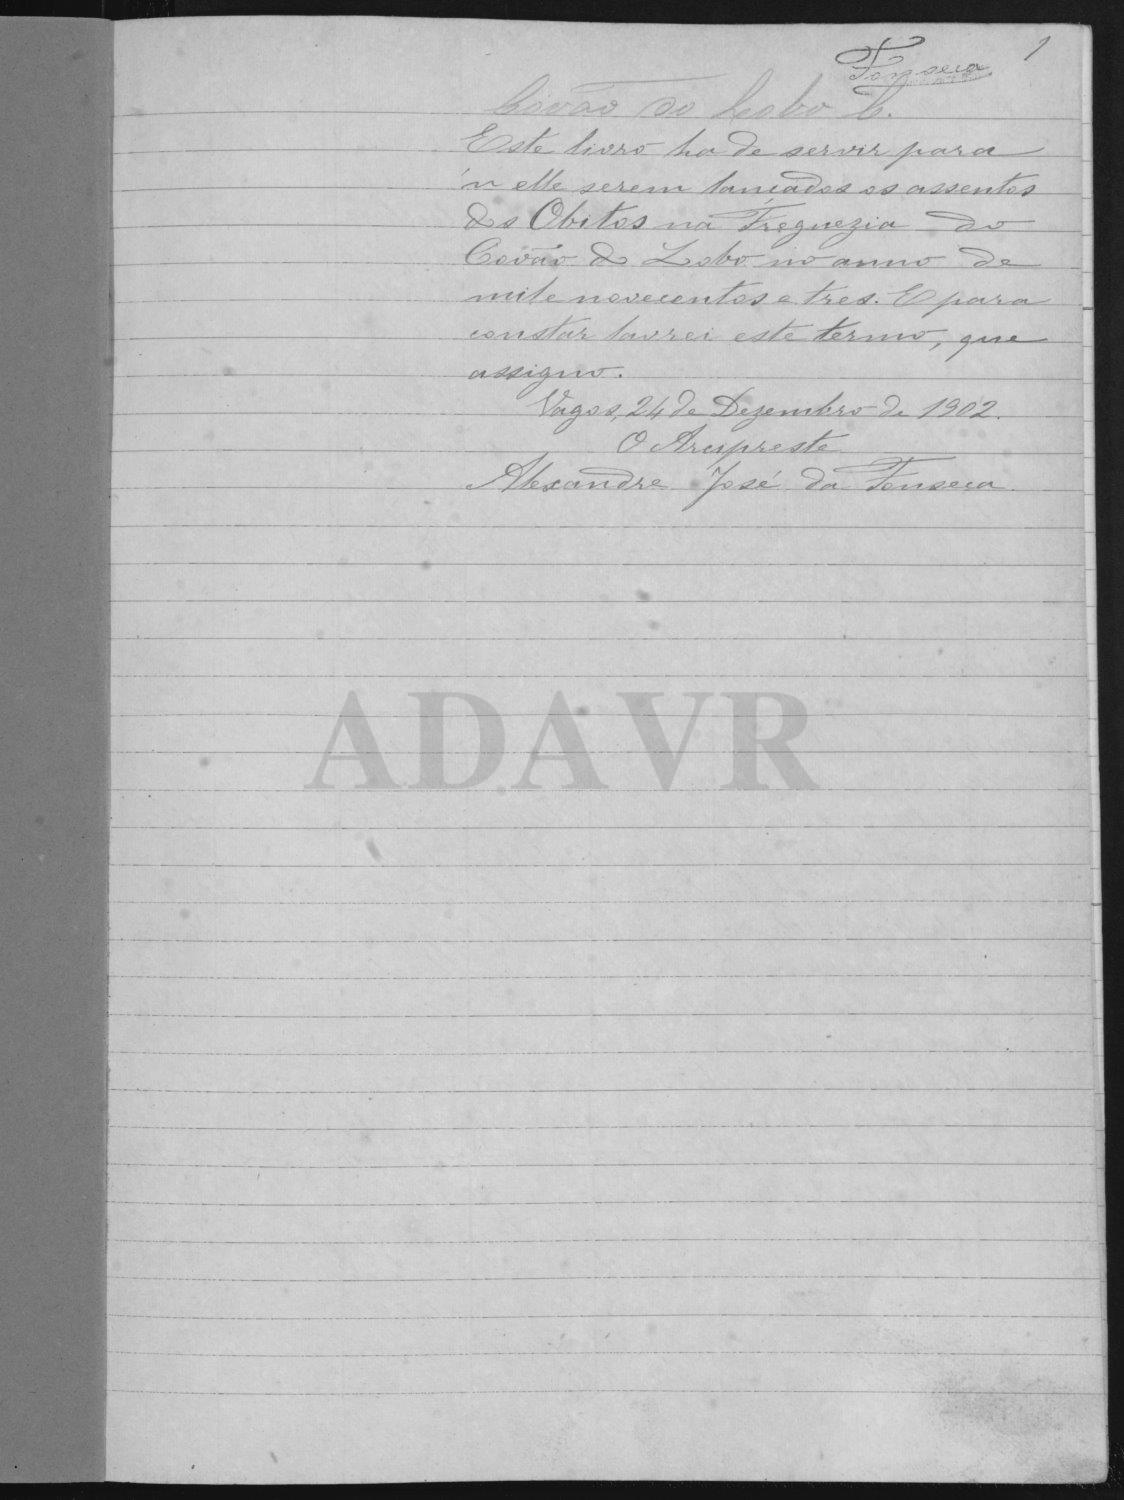 1
Fonseca
Covão do Lobo
Este livro ha de servir para
n'elle serem lançados os assentos
dos Obitos na Freguezia do
Covão do Lobo no anno de
mil e novecentos e tres. E para
constar lavrei este termo, que
assigno.
Vagos, 24 de Dezembro de 1902.
O Arcipreste
Alexandre José da Fonseca
ADAVR